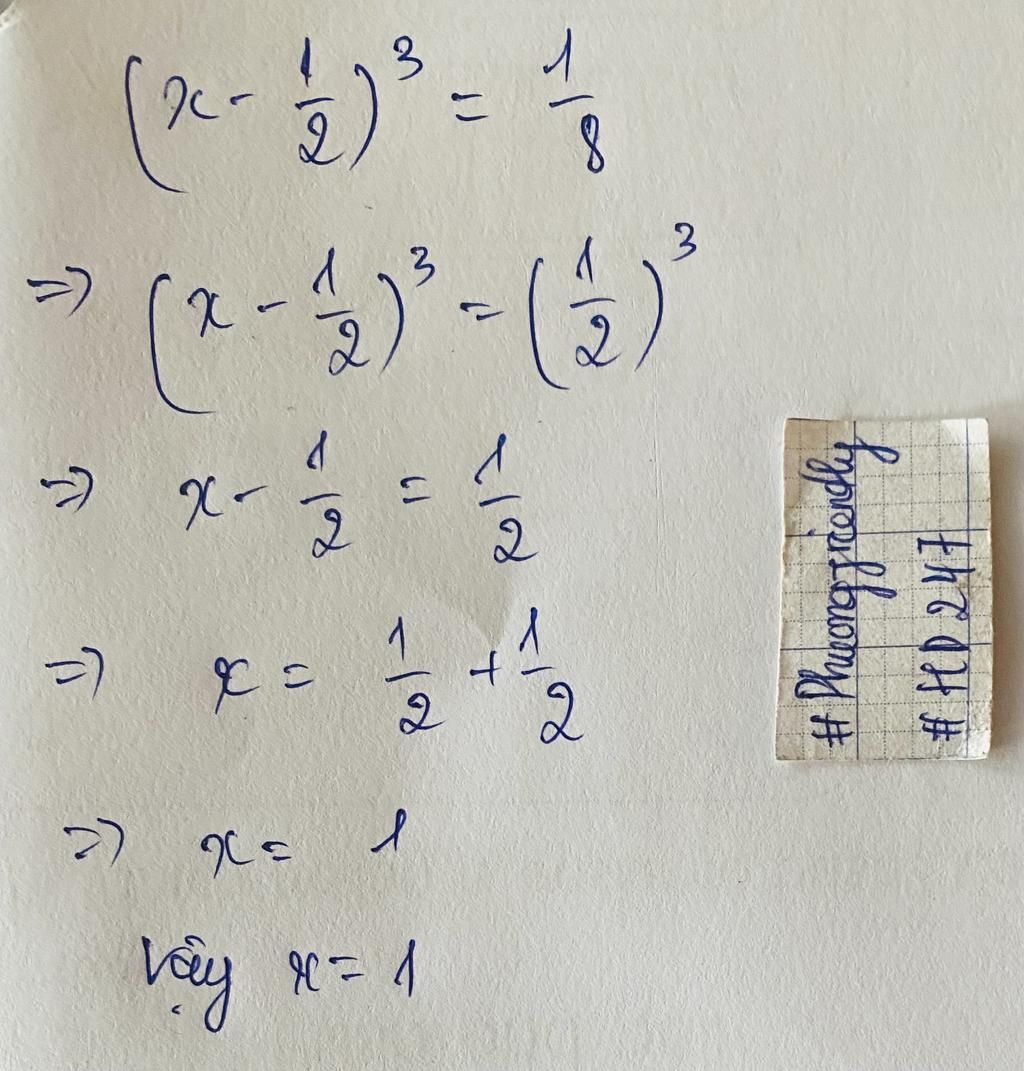 (x - 1/2)³ = 1/8
=> (x - 1/2)³ = (1/2)³
=> x - 1/2 = 1/2
=> x = 1/2 + 1/2
=> x = 1
Vậy x = 1
#Phuongfriendly
#HD247